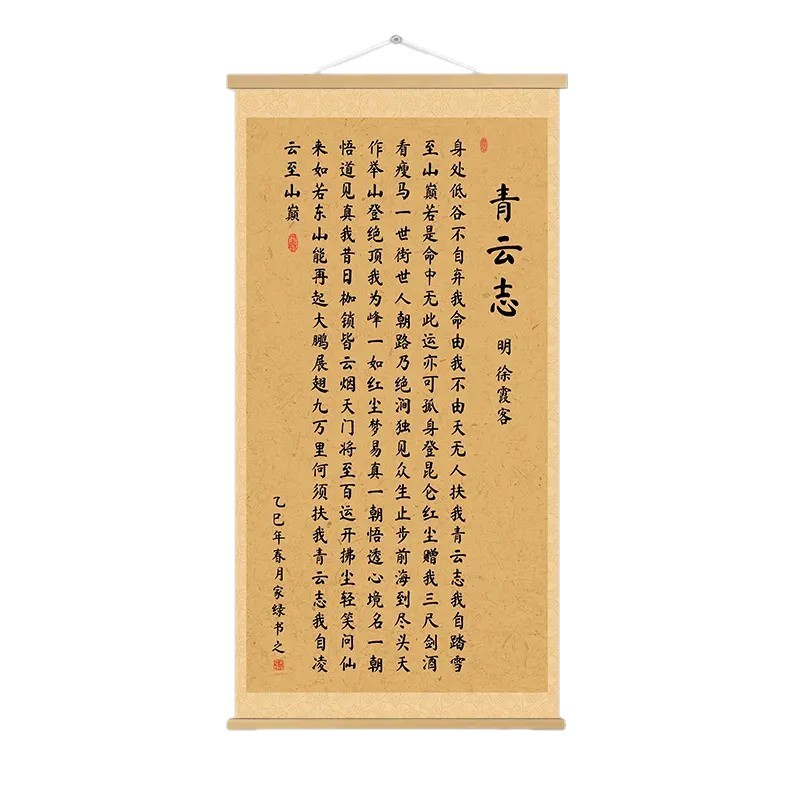 青云志 明 徐霞客
身处低谷不自弃我命由我不由天无人扶我青云志我自踏雪
至山巅若是命中无此运亦可孤身登昆仑红尘赠我三尺剑酒
看瘦马一世街世人朝路乃绝涧独见众生止步前海到尽头天
作举山登绝顶我为峰一如红尘梦易真一朝悟透心境名一朝
悟道见真我昔日枷锁皆云烟天门将至百运开拂尘轻笑问仙
来如若东山能再起大鹏展翅九万里何须扶我青云志我自凌
云至山巅
乙巳年春月家绿书之